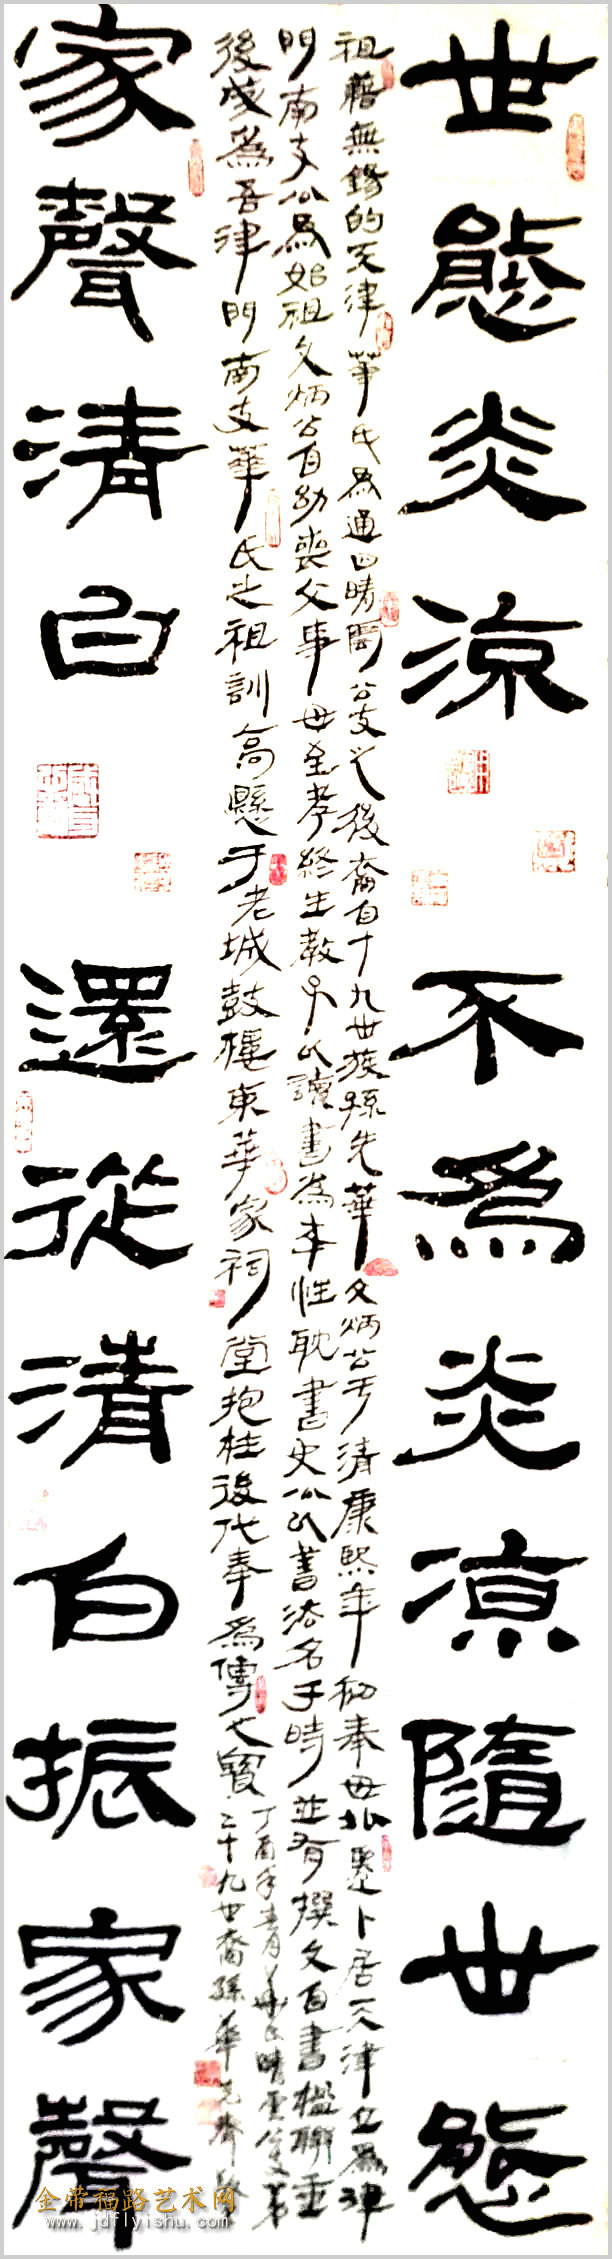 世態炎涼不為炎涼隨世態
祖藉無錫的天津華氏為通四晴雲公支之後裔自十九世族孫先華文炳公于清康熙年初奉母北遷卜居天津立為津
門南支公為始祖文炳公自幼喪父事母至孝終生教子以讀書為本性耽書史公以書法名于時並有撰文自書楹聯垂
後成為吾津門南支華氏之祖訓高懸于老城鼓樓東華家祠堂抱柱後代奉為傳世寶
丁酉年
二十九世裔孫華
家聲清白還從清白振家聲
金带福路艺术网
www.jdflyishu.com